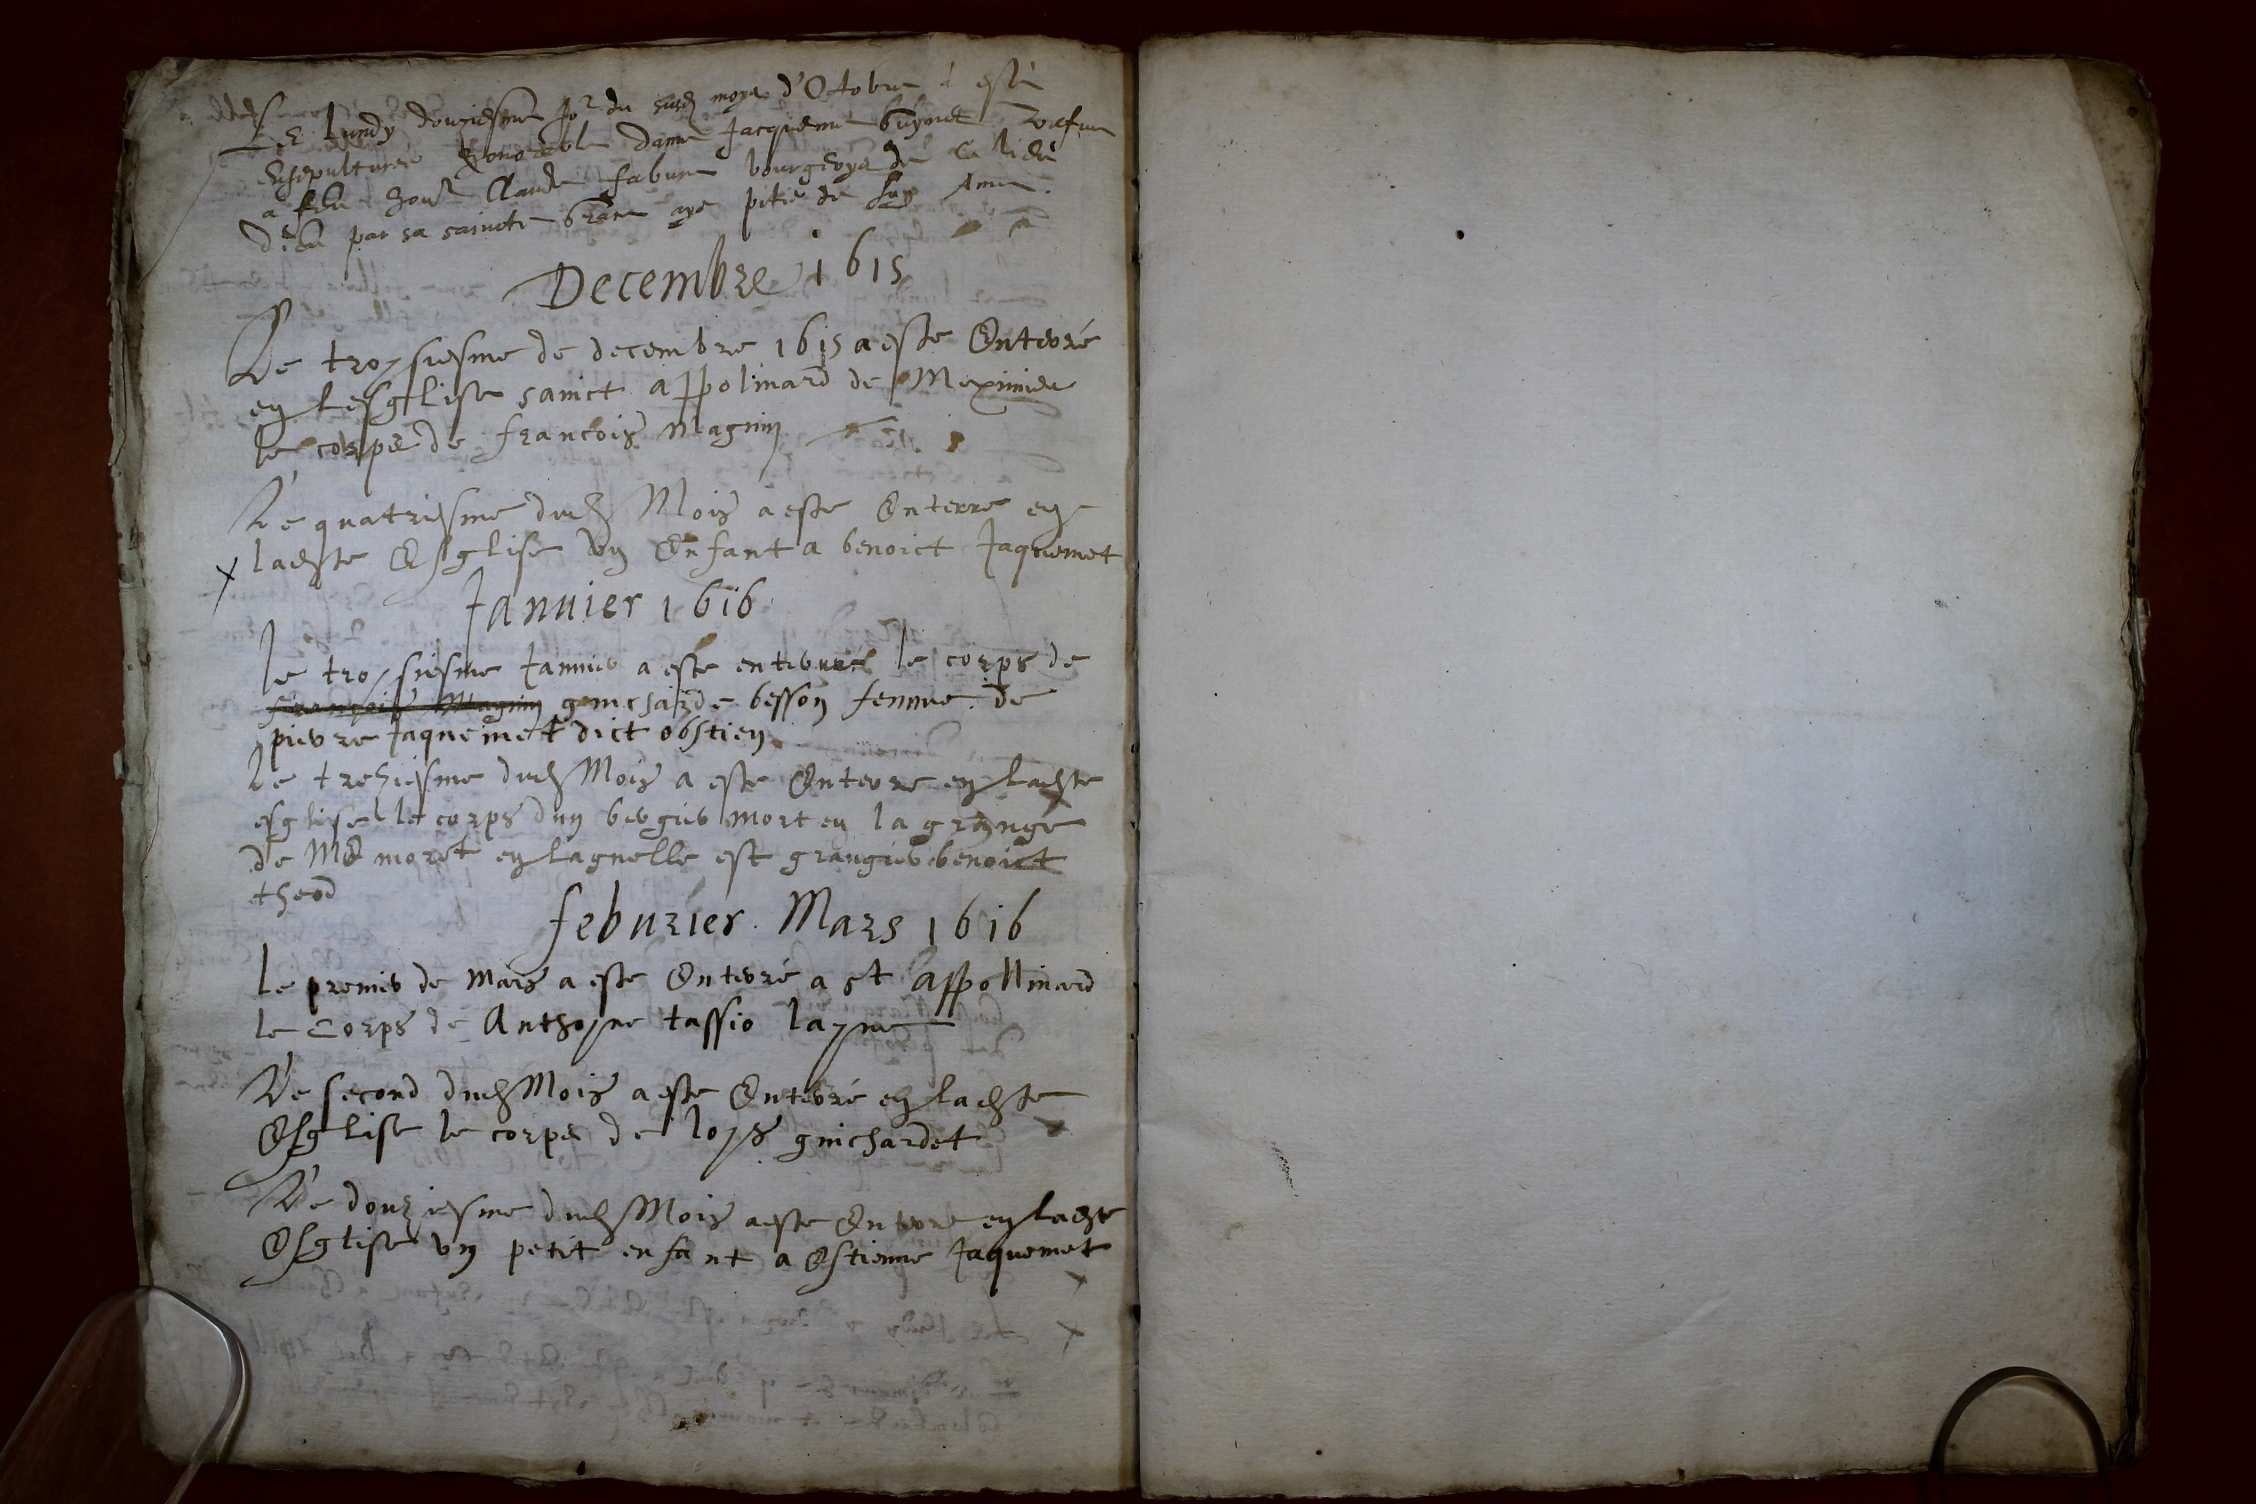 Le Lundy douziesme jor du susd moys d'Octobre a esté
ensepulturée honorable dame Jacqueme Guynet vefue
a feu honr Claude fabure bourgeoys de ce lieu
dieu par sa saincte grace aye pitié de son Ame.
Decembre 1615
Le troysiesme de decembre 1615 a este Enterré
en lesglise sainct appolinard de Meximieu
le corps de francois Magnin
Le quatriesme dud Mois a este Enterré en
ladste Esglise un Enfant a benoict Jaquemet
Januier 1616
le troysiesme Januier a este enterré le corps de
francois Magnin guicharde besson femme de
pierre Jaquemet dict obstien
Le treziesme dud Mois a este Enterre en ladste
esglise le corps dun bergier mort en la grange
de Me moret en laquelle est grangier benoict
theod
feburier. Mars 1616
Le premier de Mars a este Enterré a st appollinard
le corps de Anthoyne tassio layne
Le second dud Mois a este Enterré en ladste
Esglise le corps de loys guichardet
Le douziesme dud Mois a este Enterre en ladste
Esglise un petit enfant a Estienne Jaquemet